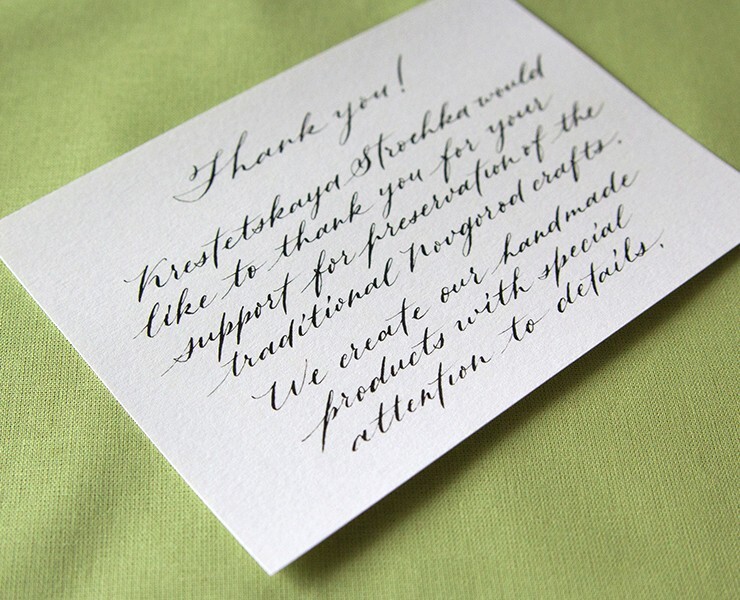 Thank you!
Krestetskaya Strochka would
like to thank you for your
support for preservation of the
traditional Novgorod crafts.
We create our handmade
products with special
attention to details.